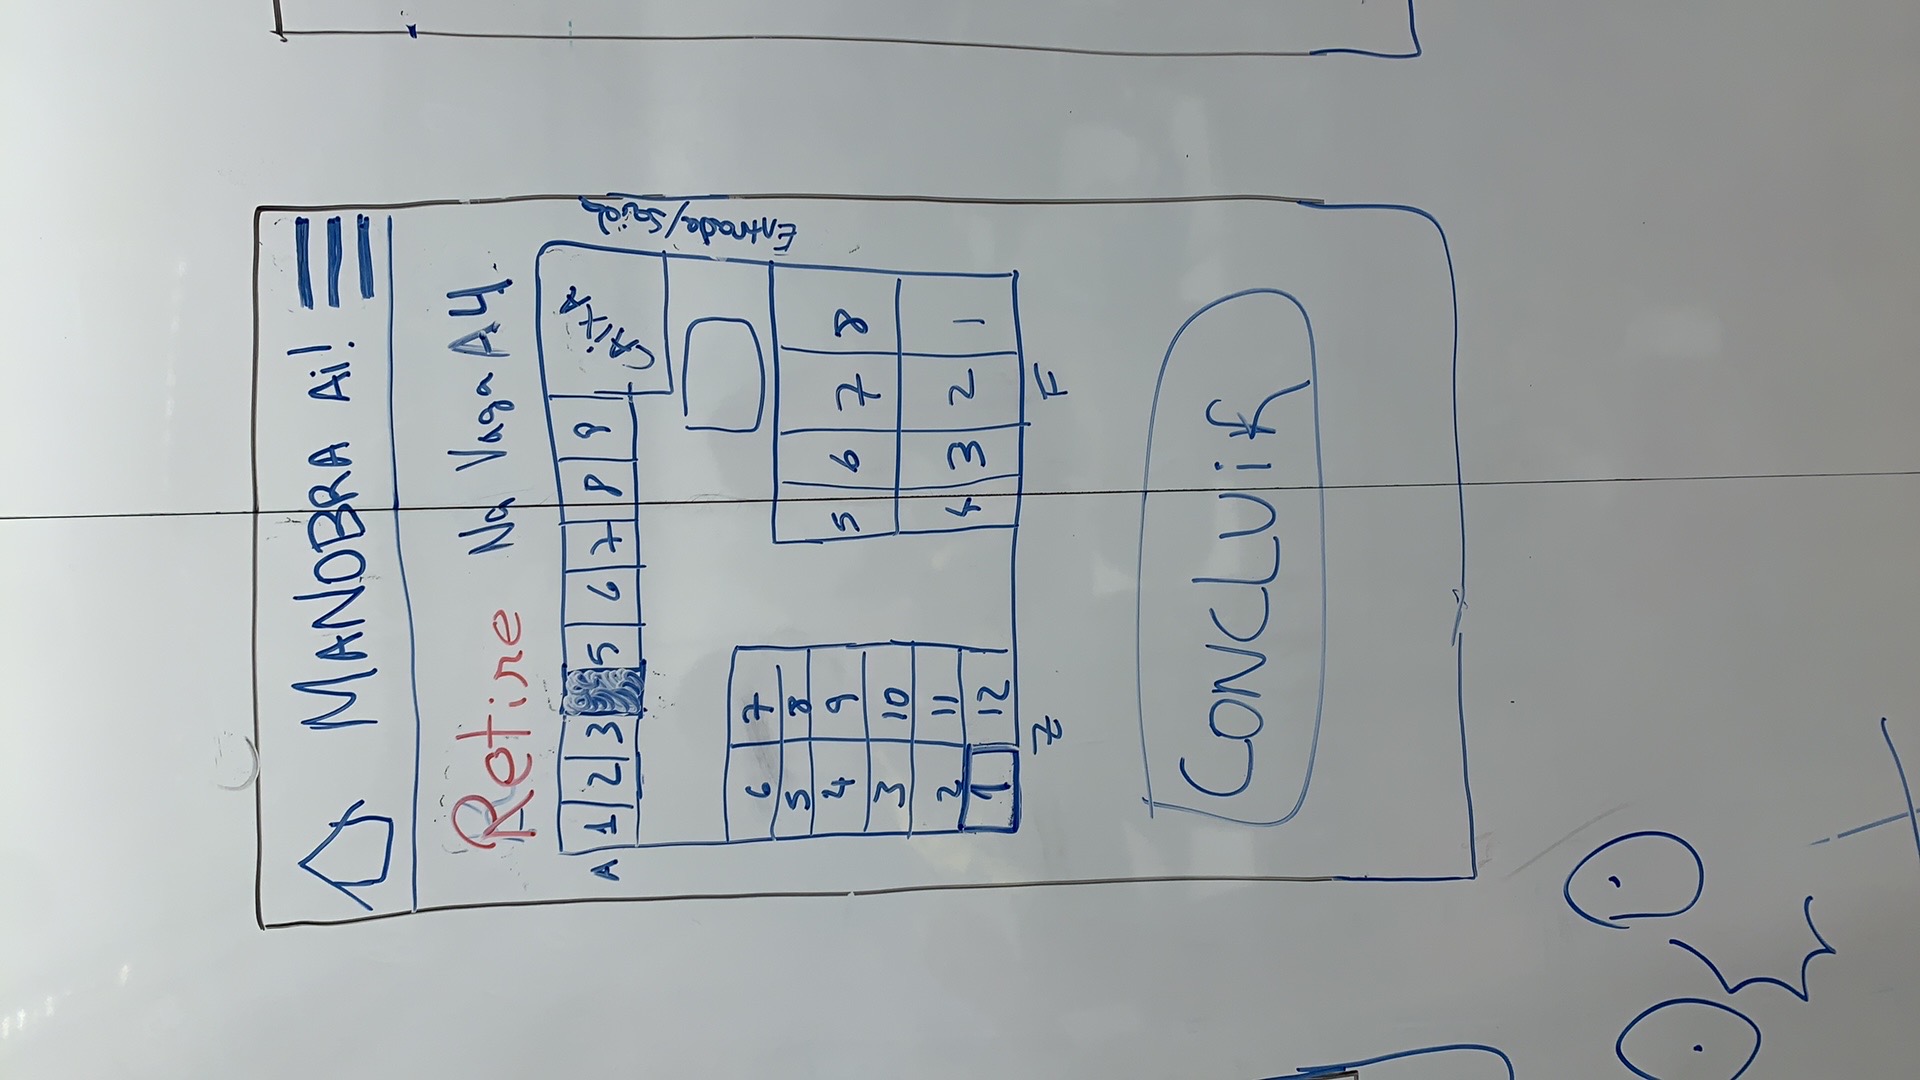 MANOBRA Ai!
Retire Na Vaga A4
A 1 2 3 5 6 7 8 9
CAIXA
Entrada/Saída
6 7
5 8
4 9
3 10
2 11
1 12
Z
5 6 7 8
4 3 2 1
F
CONCLUiR